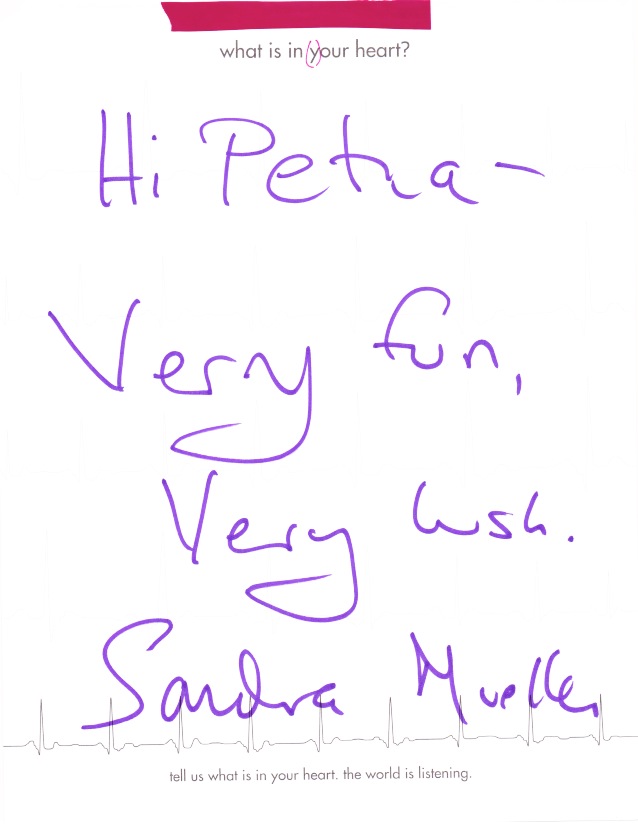 what is in (y)our heart?
Hi Petra-
Very fun,
Very lush.
Sandra Mueller
tell us what is in your heart. the world is listening.